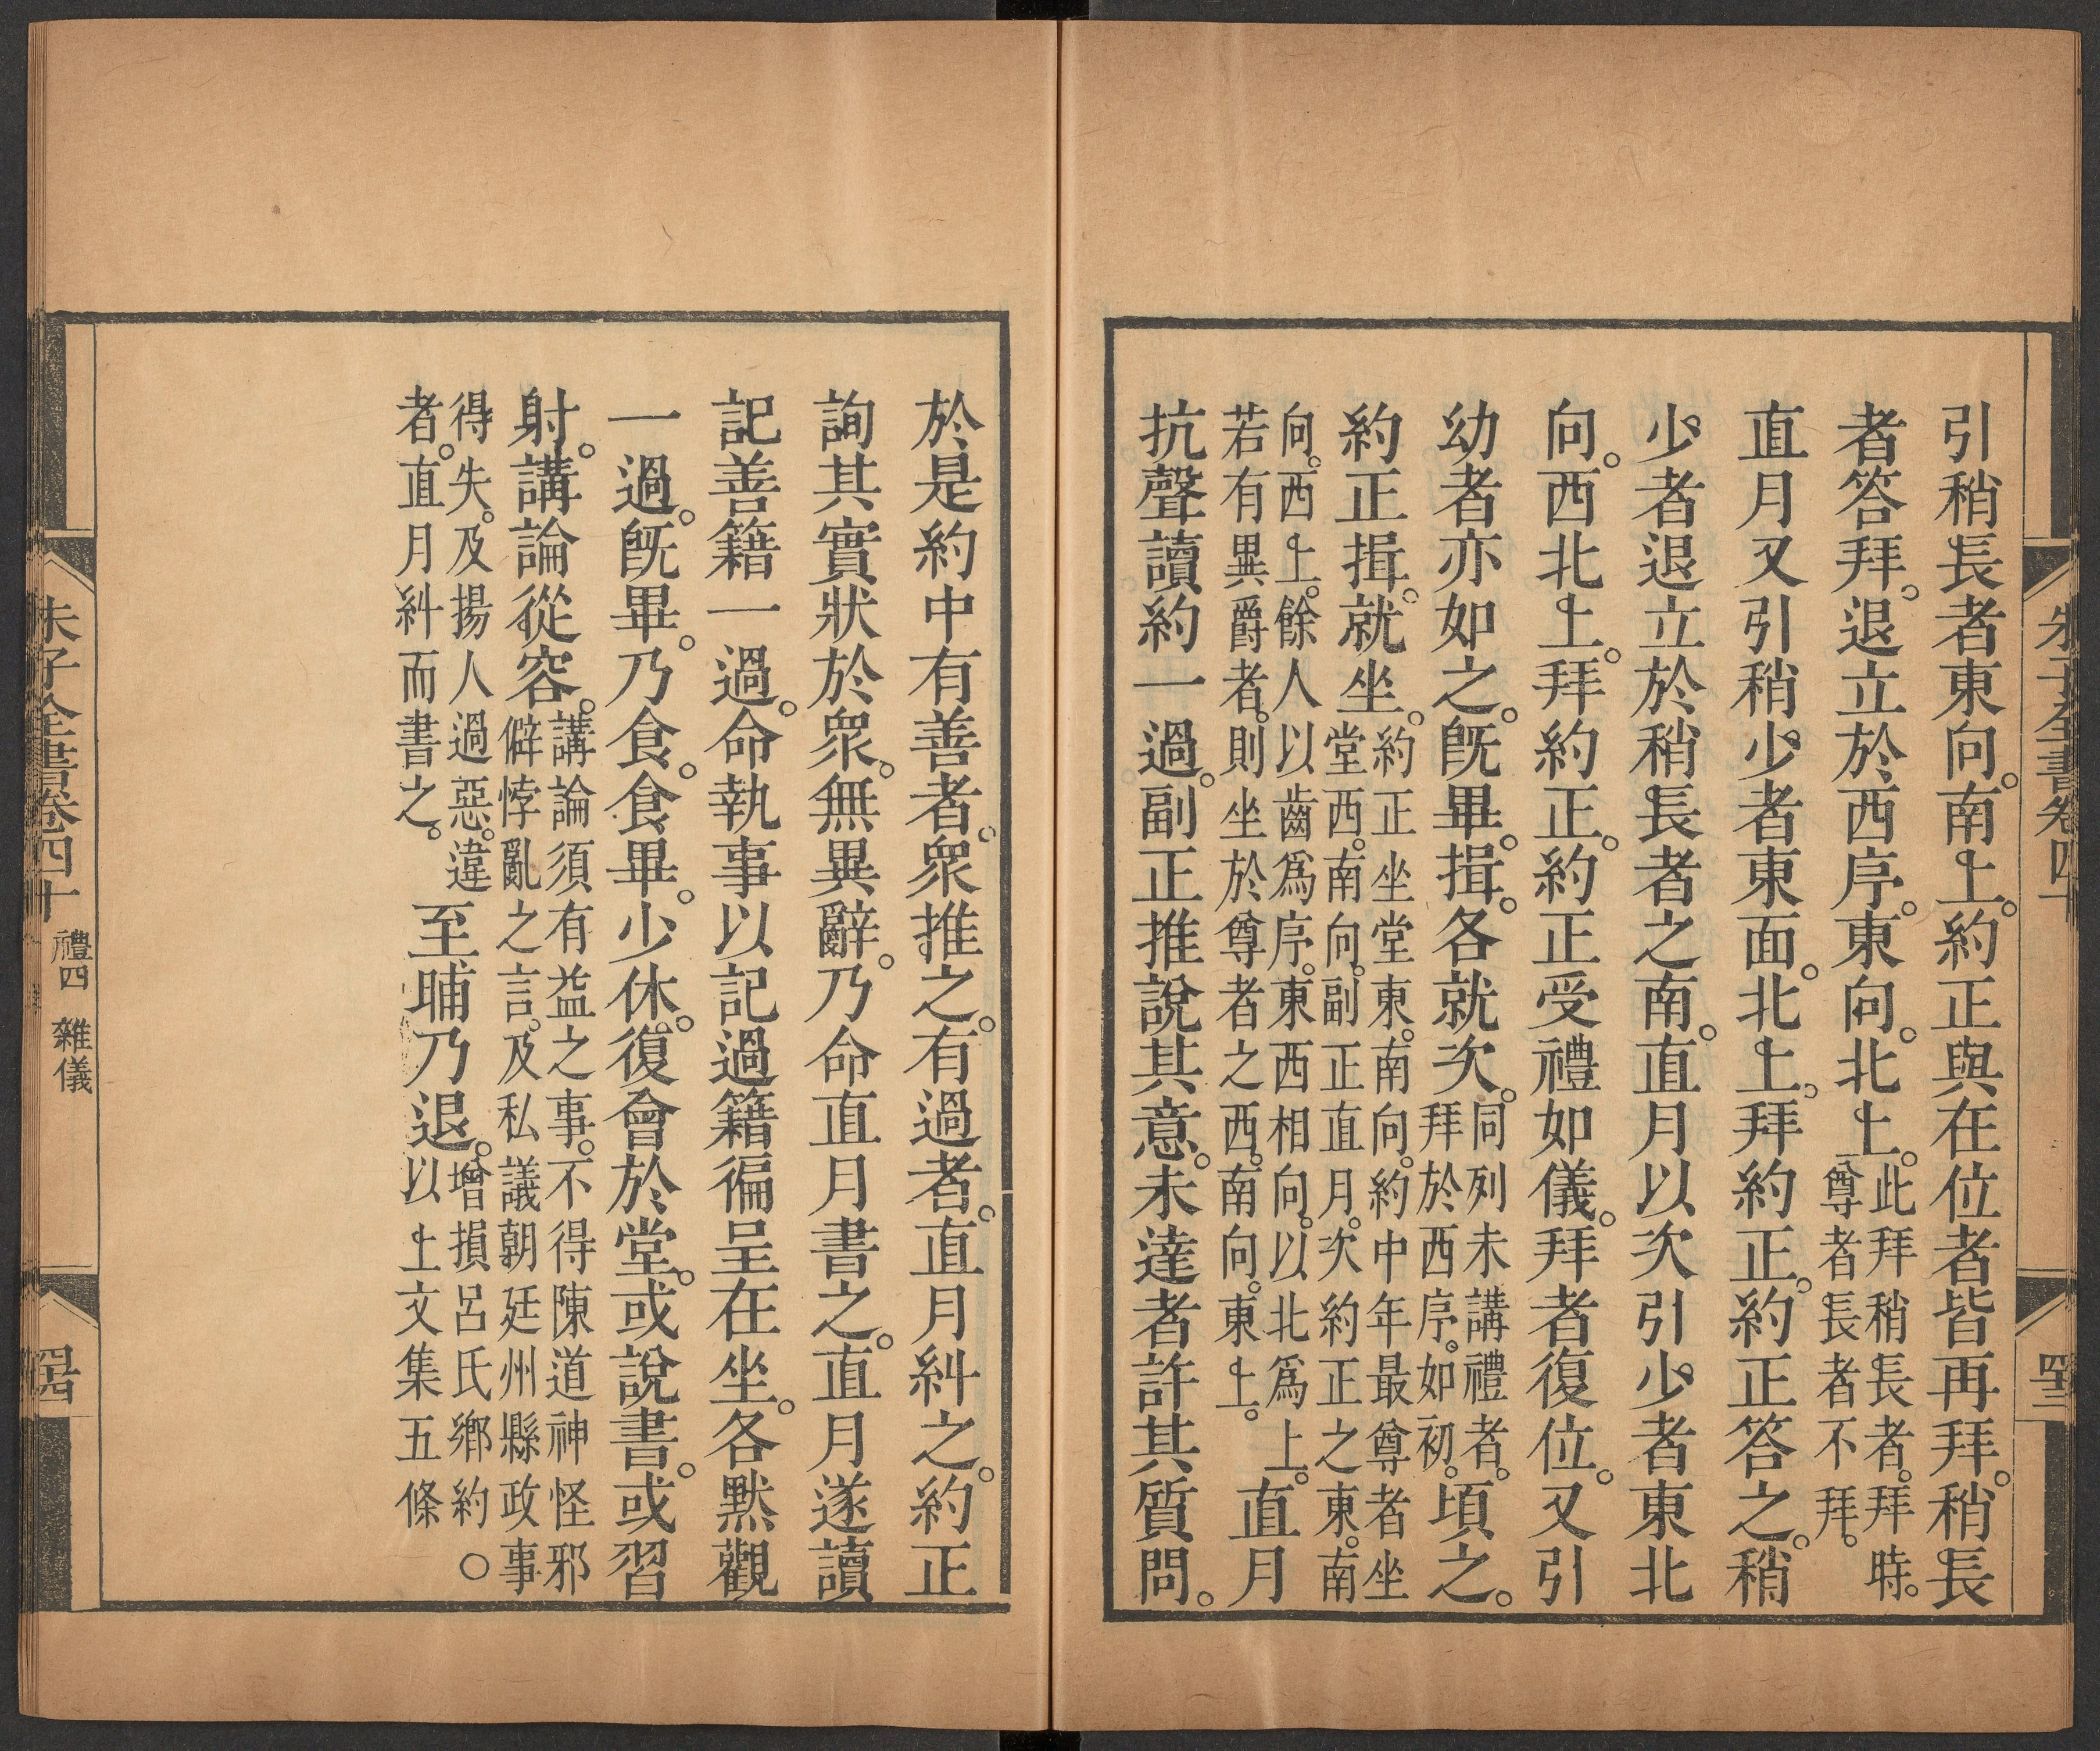 朱子全書卷四十
四十三
引稍長者東向。南上。約正與在位者皆再拜。稍長
者答拜。退立於西序。東向。北上。此拜稍長者。拜時。尊者長者不拜。
直月又引稍少者東面。北上。拜約正。約正答之。稍
少者退立於稍長者之南。直月以次引少者東北
向。西北上。拜約正。約正受禮如儀。拜者復位。又引
幼者亦如之。既畢。揖。各就次。同列未講禮者。拜於西序。如初。頃之。
約正揖。就坐。約正坐堂東。南向。約中年最尊者坐堂西。南向。副正直月。次約正之東。南
向。西上。餘人以齒爲序。東西相向。以北爲上。若有異爵者。則坐於尊者之西。南向。東上。直月
抗聲讀約一過。副正推說其意。未達者許其質問。
於是約中有善者。衆推之。有過者。直月糾之。約正
詢其實狀於衆。無異辭。乃命直月書之。直月遂讀
記善籍一過。命執事以記過籍徧呈在坐。各默觀
一過。既畢。乃食。食畢。少休。復會於堂。或說書。或習
射。講論從容。講論須有益之事。不得陳道神怪邪僻悖亂之言。及私議朝廷州縣政事
得失。及揚人過惡。違者。直月糾而書之。至晡乃退。增損呂氏鄉約。〇以上文集五條
朱子全書卷四十 禮四 雜儀
四十四